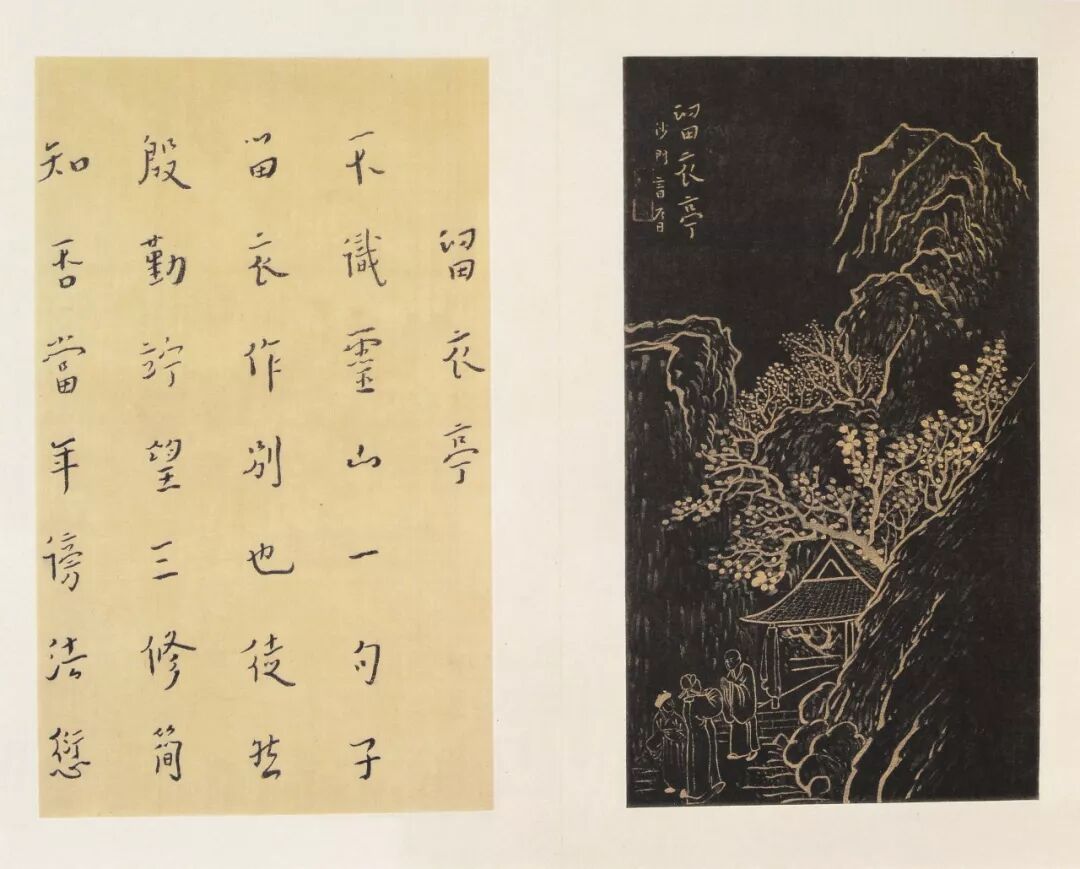 留衣亭
沙門
留衣亭
不識靈山一句子
留衣作別也徒然
殷勤竚望三修簡
知否當年謗法愆